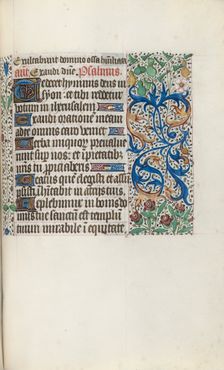 Exultabunt domino ossa humiliata
Exaudi dñe. Psalmus.
Te decet hymnus deus in
syon: et tibi reddetur
votum in iherusalem
Exaudi orationē meam
ad te omnis caro veniet
Verba iniquor prevalue
runt sup nos: et īpietatib;
nr̄is tu ppiciaberis
Beatus quē elegisti et assū
psisti: īhabitabit in atrijs tuis
Replebimur in bonis do
mus tue sanctū est templū
tuum mirabile ī equitate